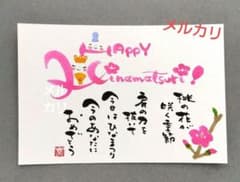 メルカリ
HAPPY
Hinamatsuri
メルカリ
桃の花が
咲く季節
春の力を
頂いて
今日はひなまつり
今のあなたに
おめでとう